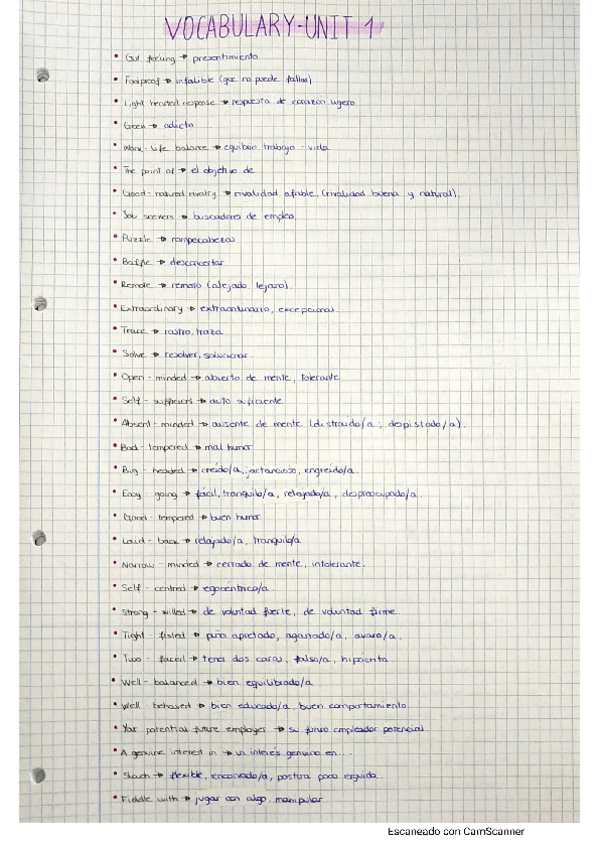 VOCABULARY-UNIT 1
• Gut feeling → presentimiento
• Foolproof → infalible (que no puede fallar)
• Light hearted response → respuesta de corazón ligero
• → adicto
• Work-life balance → equilibrio trabajo-vida
• The point of → el objetivo de
• Good-natured rivalry → rivalidad afable, (rivalidad buena y natural).
• Job seekers → buscadores de empleo
• Puzzle → rompecabezas
• Baffle → desconcertar
• Remote → remoto (alejado, lejano).
• Extraordinary → extraordinario, excepcional
• Trace → rastro, traza
• Solve → resolver, solucionar.
• Open-minded → abierto de mente, tolerante
• Self-sufficient → auto suficiente
• Absent-minded → ausente de mente (distraído/a; despistado/a).
• Bad-tempered → mal humor
• Big-headed → creído/a, jactancioso, engreído/a.
• Easy-going → fácil, tranquilo/a, relajado/a, despreocupado/a.
• Good-tempered → buen humor
• Laid-back → relajado/a, tranquilo/a
• Narrow-minded → cerrado de mente, intolerante.
• Self-centred → egocéntrico/a
• Strong-willed → de voluntad fuerte, de voluntad firme.
• Tight-fisted → puño apretado, agarrado/a, avaro/a.
• Two-faced → tener dos caras, falso/a, hipócrita.
• Well-balanced → bien equilibrado/a
• Well-behaved → bien educado/a, buen comportamiento
• Your potential future employer → su futuro empleador potencial.
• A genuine interest in → un interés genuino en...
• Slouch → flexible, encorvado/a, postura poco erguida.
• Fiddle with → jugar con algo, manipular
Escaneado con CamScanner